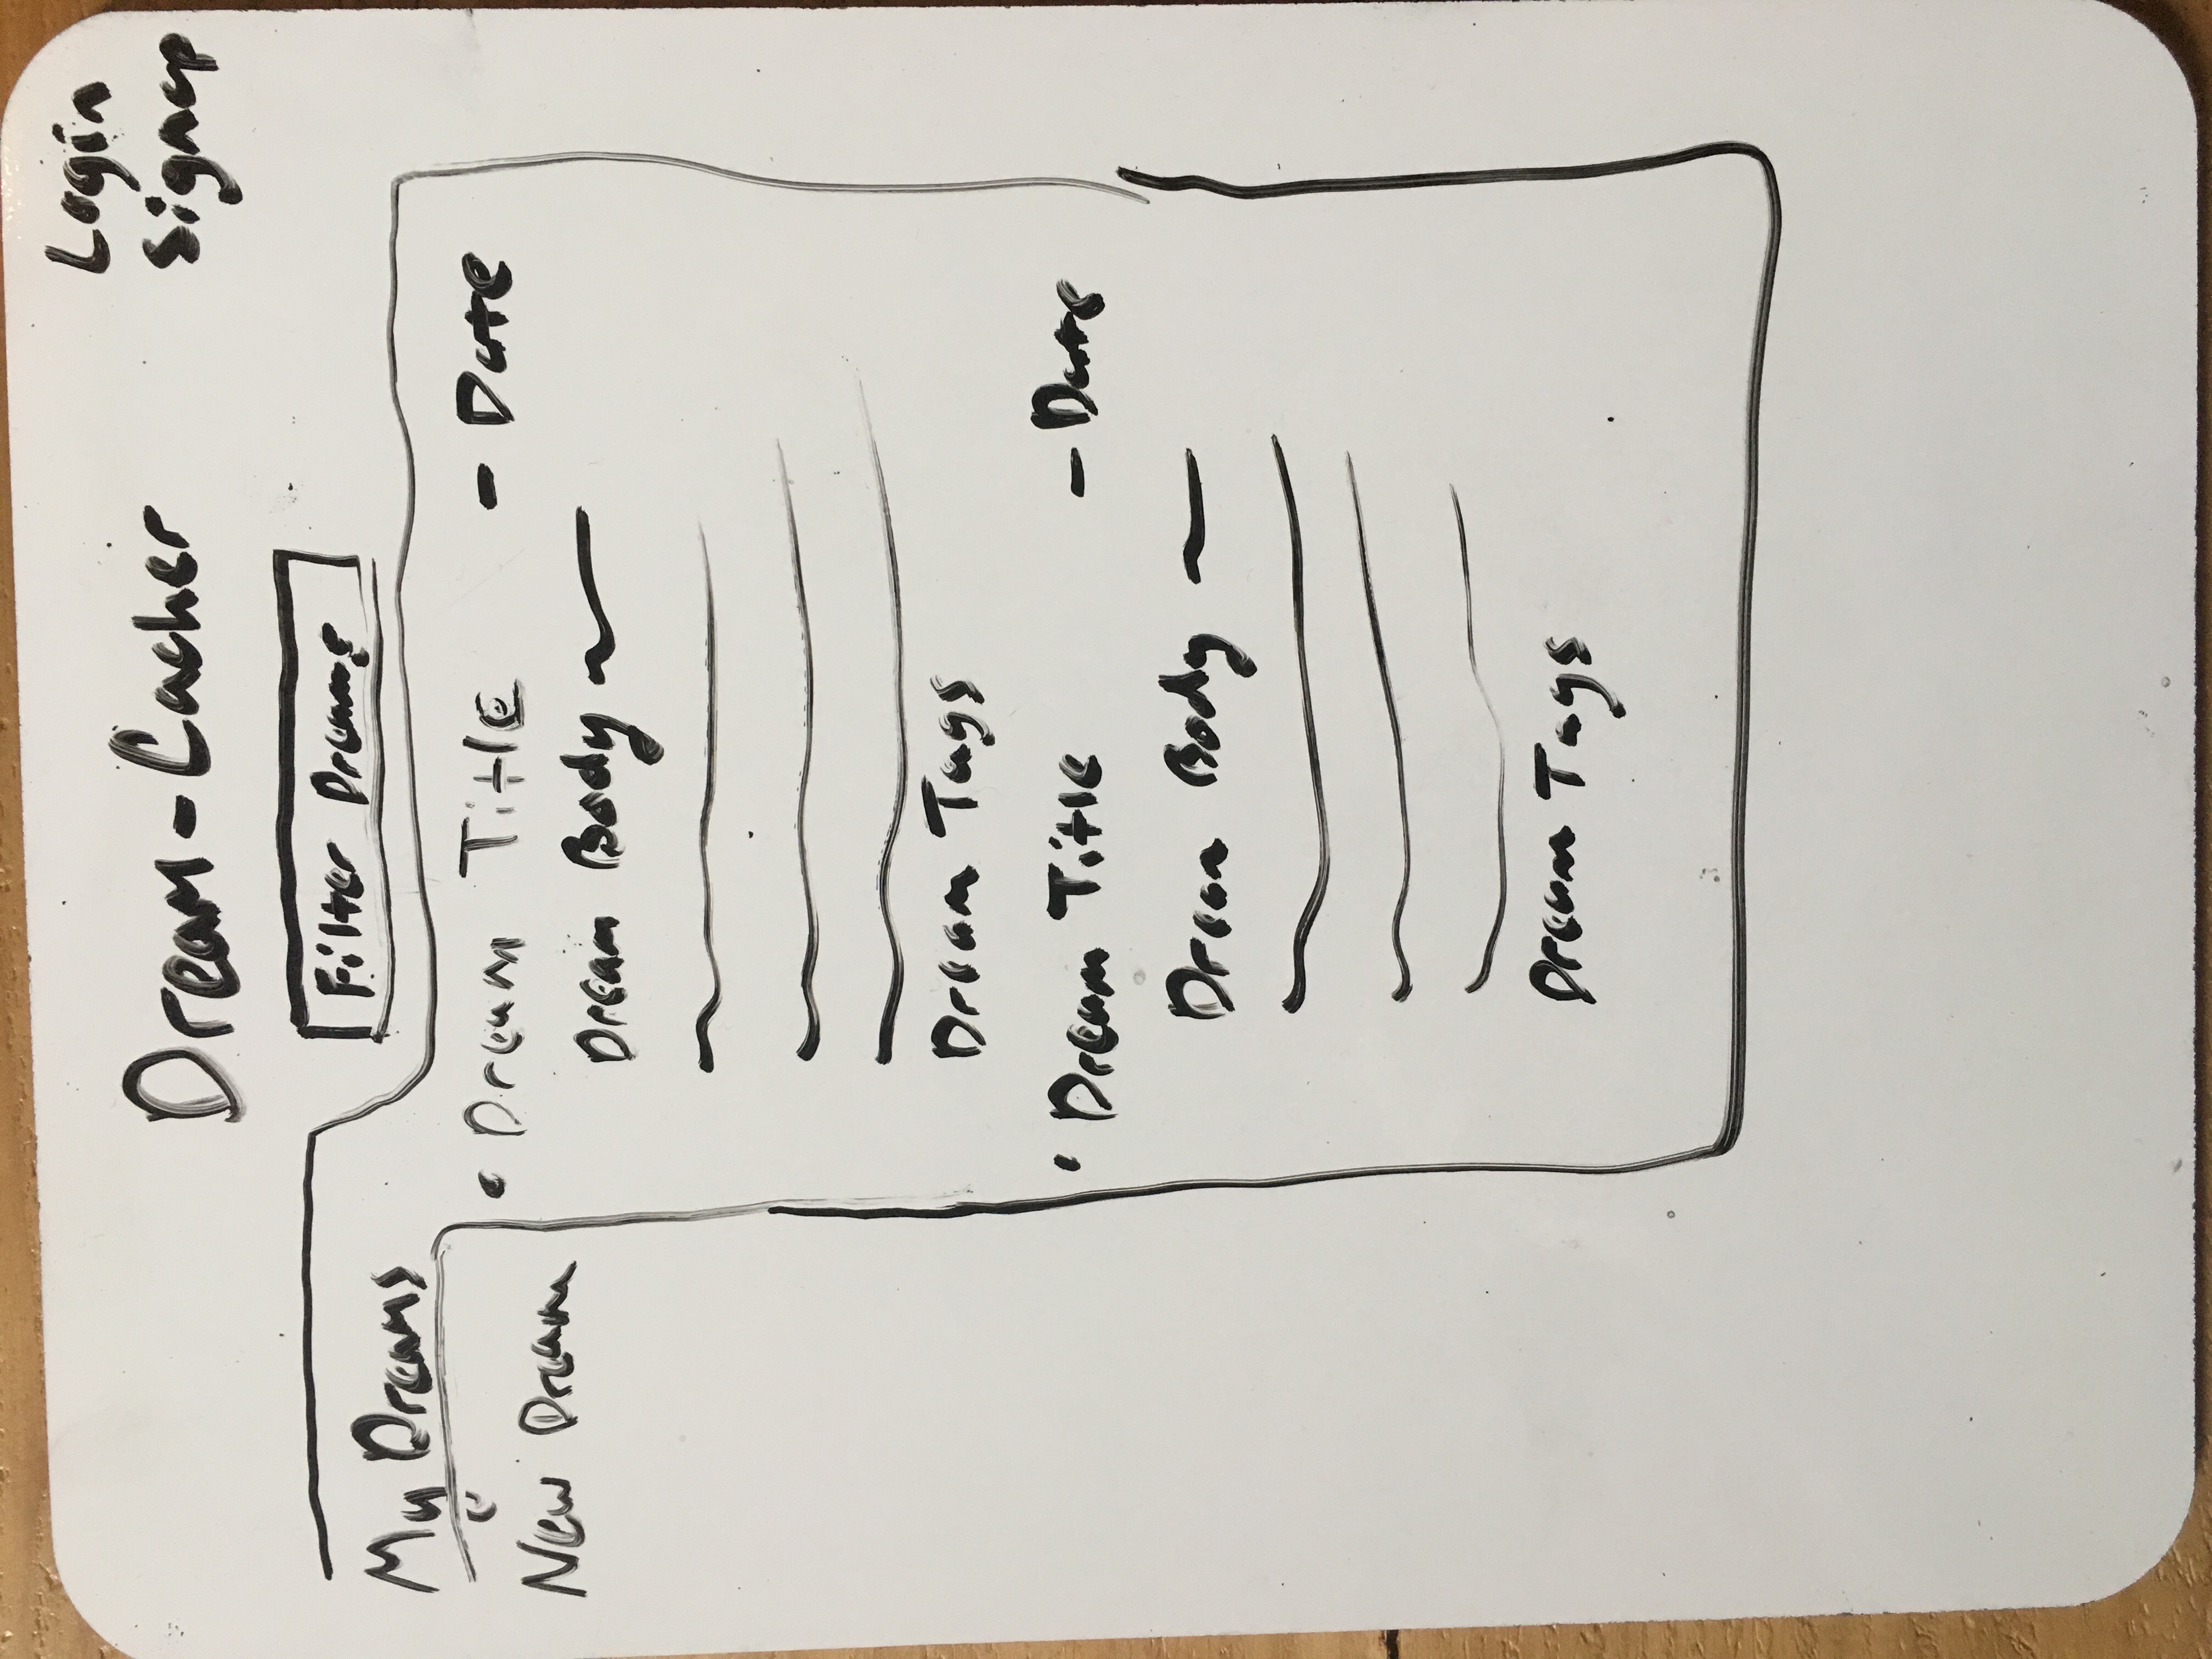 Login
Signup
Dream-Cacher
Filter Dreams
My Dreams
New Dream
• Dream Title - Date
Dream Body
Dream Tags
• Dream Title - Date
Dream Body
Dream Tags